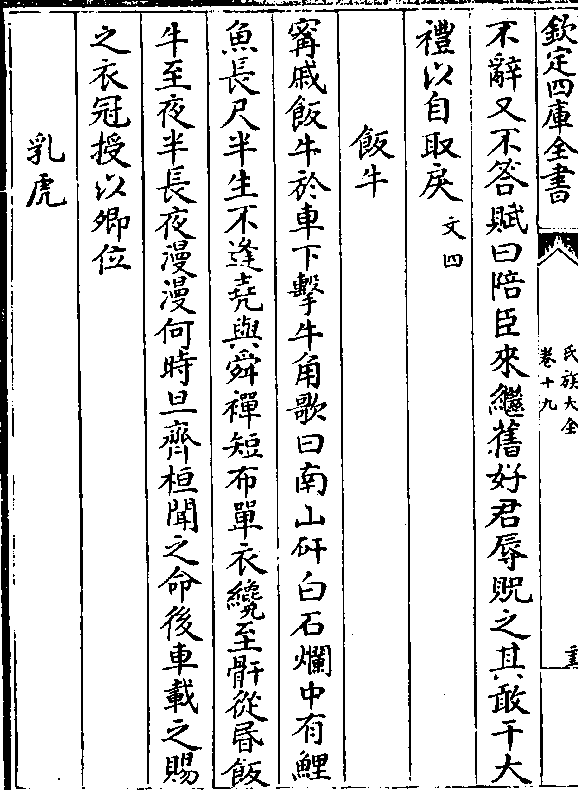 欽定四庫全書
氏族大全
卷十九
不辭又不答賦曰陪臣來繼舊好君辱貺之其敢干大
禮以自取戾文四
飯牛
甯戚飯牛於車下擊牛角歌曰南山矸白石爛中有鯉
魚長尺半生不逢堯與舜禪短布單衣纔至骭從昏飯
牛至夜半長夜漫漫何時旦齊桓聞之命後車載之賜
之衣冠授以卿位
乳虎